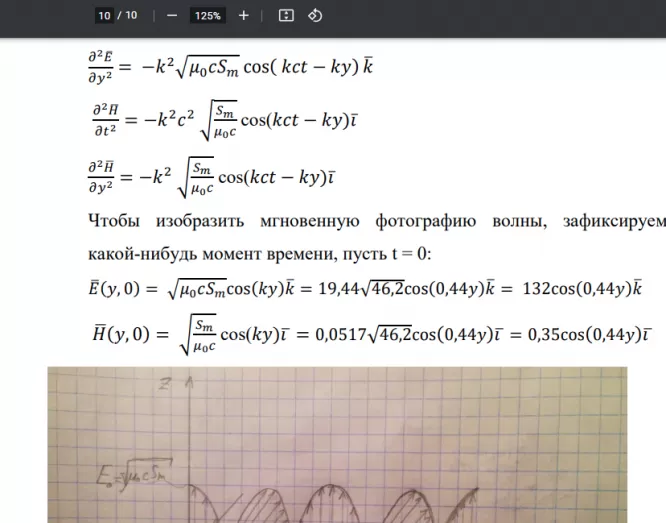 10 / 10 — 125% +
∂²E̅/∂y² = −k²√(μ₀cSₘ) cos( kct − ky) k̅
∂²H̅/∂t² = −k²c² √(Sₘ/μ₀c) cos(kct − ky)ı̅
∂²H̅/∂y² = −k² √(Sₘ/μ₀c) cos(kct − ky)ı̅
Чтобы изобразить мгновенную фотографию волны, зафиксируем
какой-нибудь момент времени, пусть t = 0:
E̅(y, 0) = √(μ₀cSₘ)cos(ky)k̅ = 19,44√46,2cos(0,44y)k̅ = 132cos(0,44y)k̅
H̅(y, 0) = √(Sₘ/μ₀c) cos(ky)ı̅ = 0,0517√46,2cos(0,44y)ı̅ = 0,35cos(0,44y)ı̅
Z
E₀=√(μ₀cSₘ)